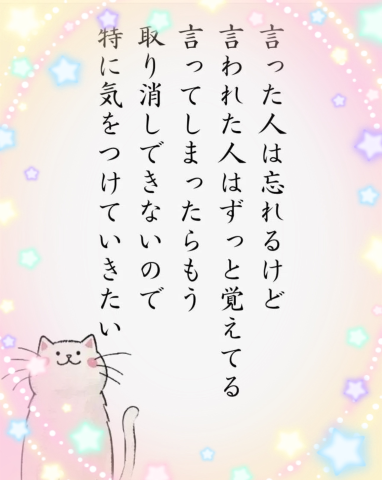 言った人は忘れるけど
言われた人はずっと覚えてる
言ってしまったらもう
取り消しできないので
特に気をつけていきたい